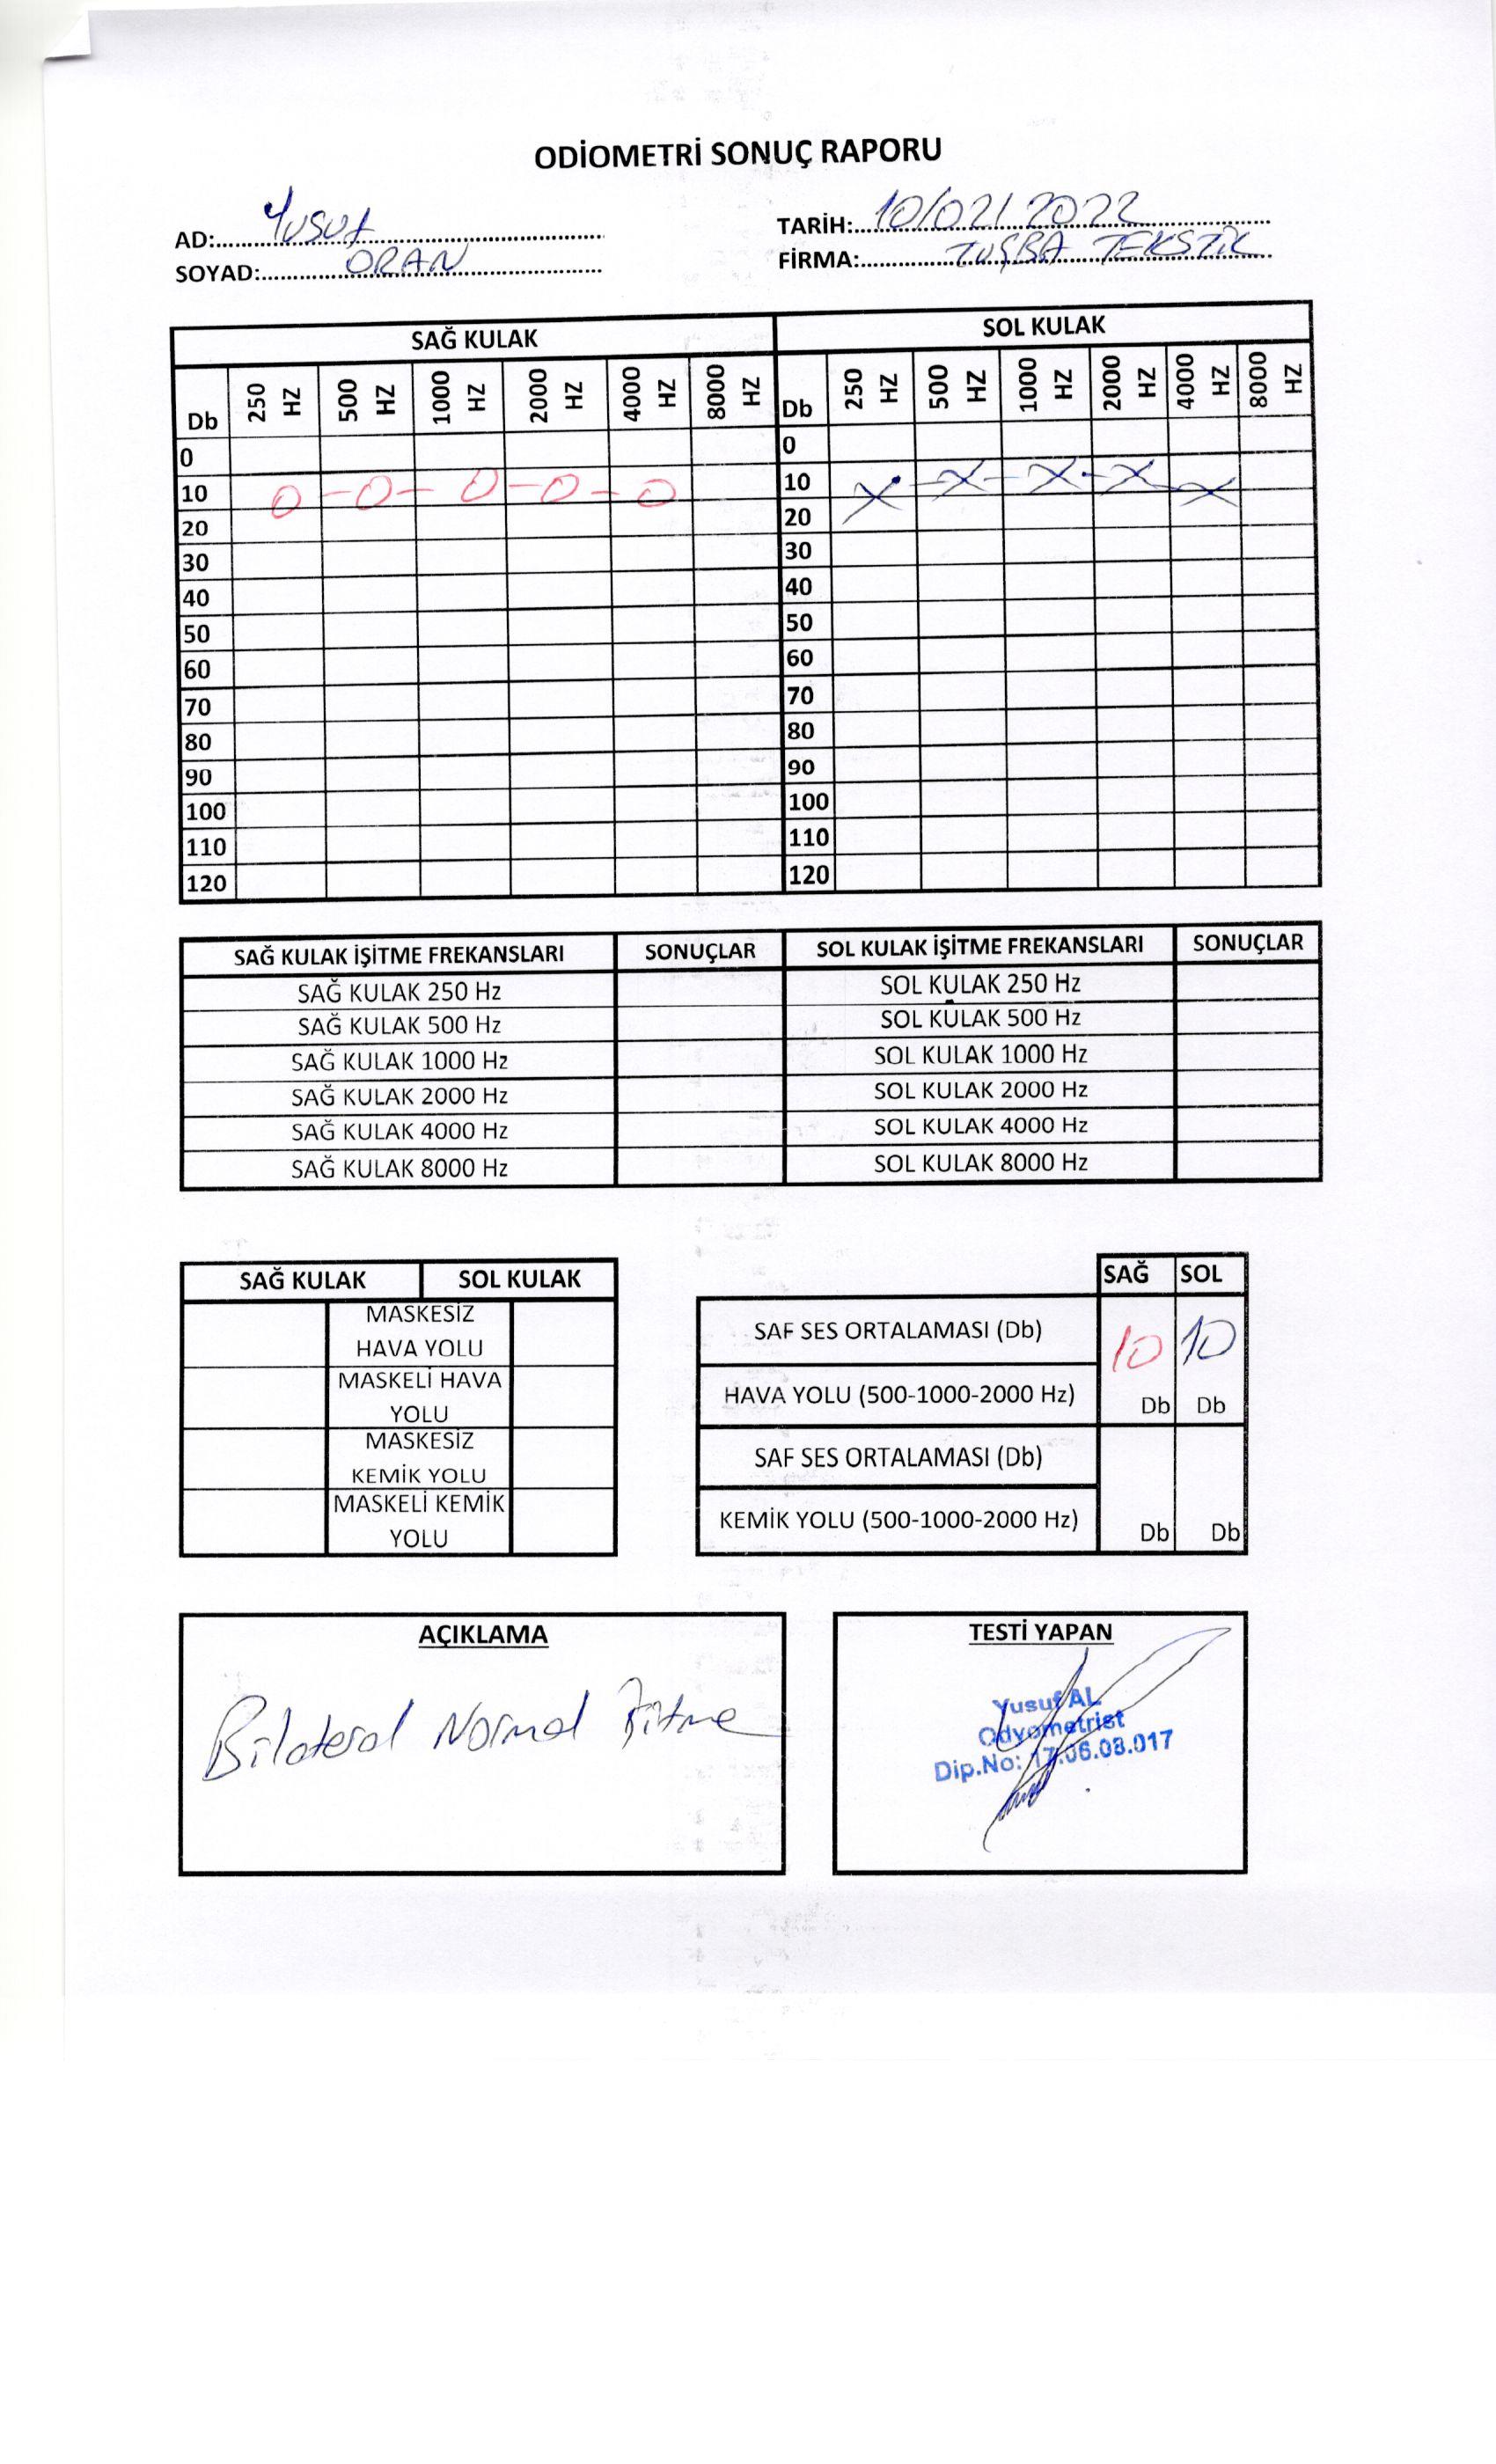 ODİOMETRİ SONUÇ RAPORU
AD: Yusuf
SOYAD: ORAN
TARİH: 10/02/2022
FİRMA: TUŞBA TEKSTİL
SAĞ KULAK SOL KULAK
Db 250 HZ 500 HZ 1000 HZ 2000 HZ 4000 HZ 8000 HZ Db 250 HZ 500 HZ 1000 HZ 2000 HZ 4000 HZ 8000 HZ
0 0
10 O-O-O-O-O 10 X-X-X-X-X
20 20
30 30
40 40
50 50
60 60
70 70
80 80
90 90
100 100
110 110
120 120
SAĞ KULAK İŞİTME FREKANSLARI SONUÇLAR SOL KULAK İŞİTME FREKANSLARI SONUÇLAR
SAĞ KULAK 250 Hz SOL KULAK 250 Hz
SAĞ KULAK 500 Hz SOL KULAK 500 Hz
SAĞ KULAK 1000 Hz SOL KULAK 1000 Hz
SAĞ KULAK 2000 Hz SOL KULAK 2000 Hz
SAĞ KULAK 4000 Hz SOL KULAK 4000 Hz
SAĞ KULAK 8000 Hz SOL KULAK 8000 Hz
SAĞ KULAK SOL KULAK
MASKESİZ
HAVA YOLU
MASKELİ HAVA
YOLU
MASKESİZ
KEMİK YOLU
MASKELİ KEMİK
YOLU
SAĞ SOL
SAF SES ORTALAMASI (Db) 10 10
HAVA YOLU (500-1000-2000 Hz) Db Db
SAF SES ORTALAMASI (Db)
KEMİK YOLU (500-1000-2000 Hz) Db Db
AÇIKLAMA
Bilateral Normal İşitme
TESTİ YAPAN
Yusuf AL
Odyometrist
Dip.No: 17.06.08.017